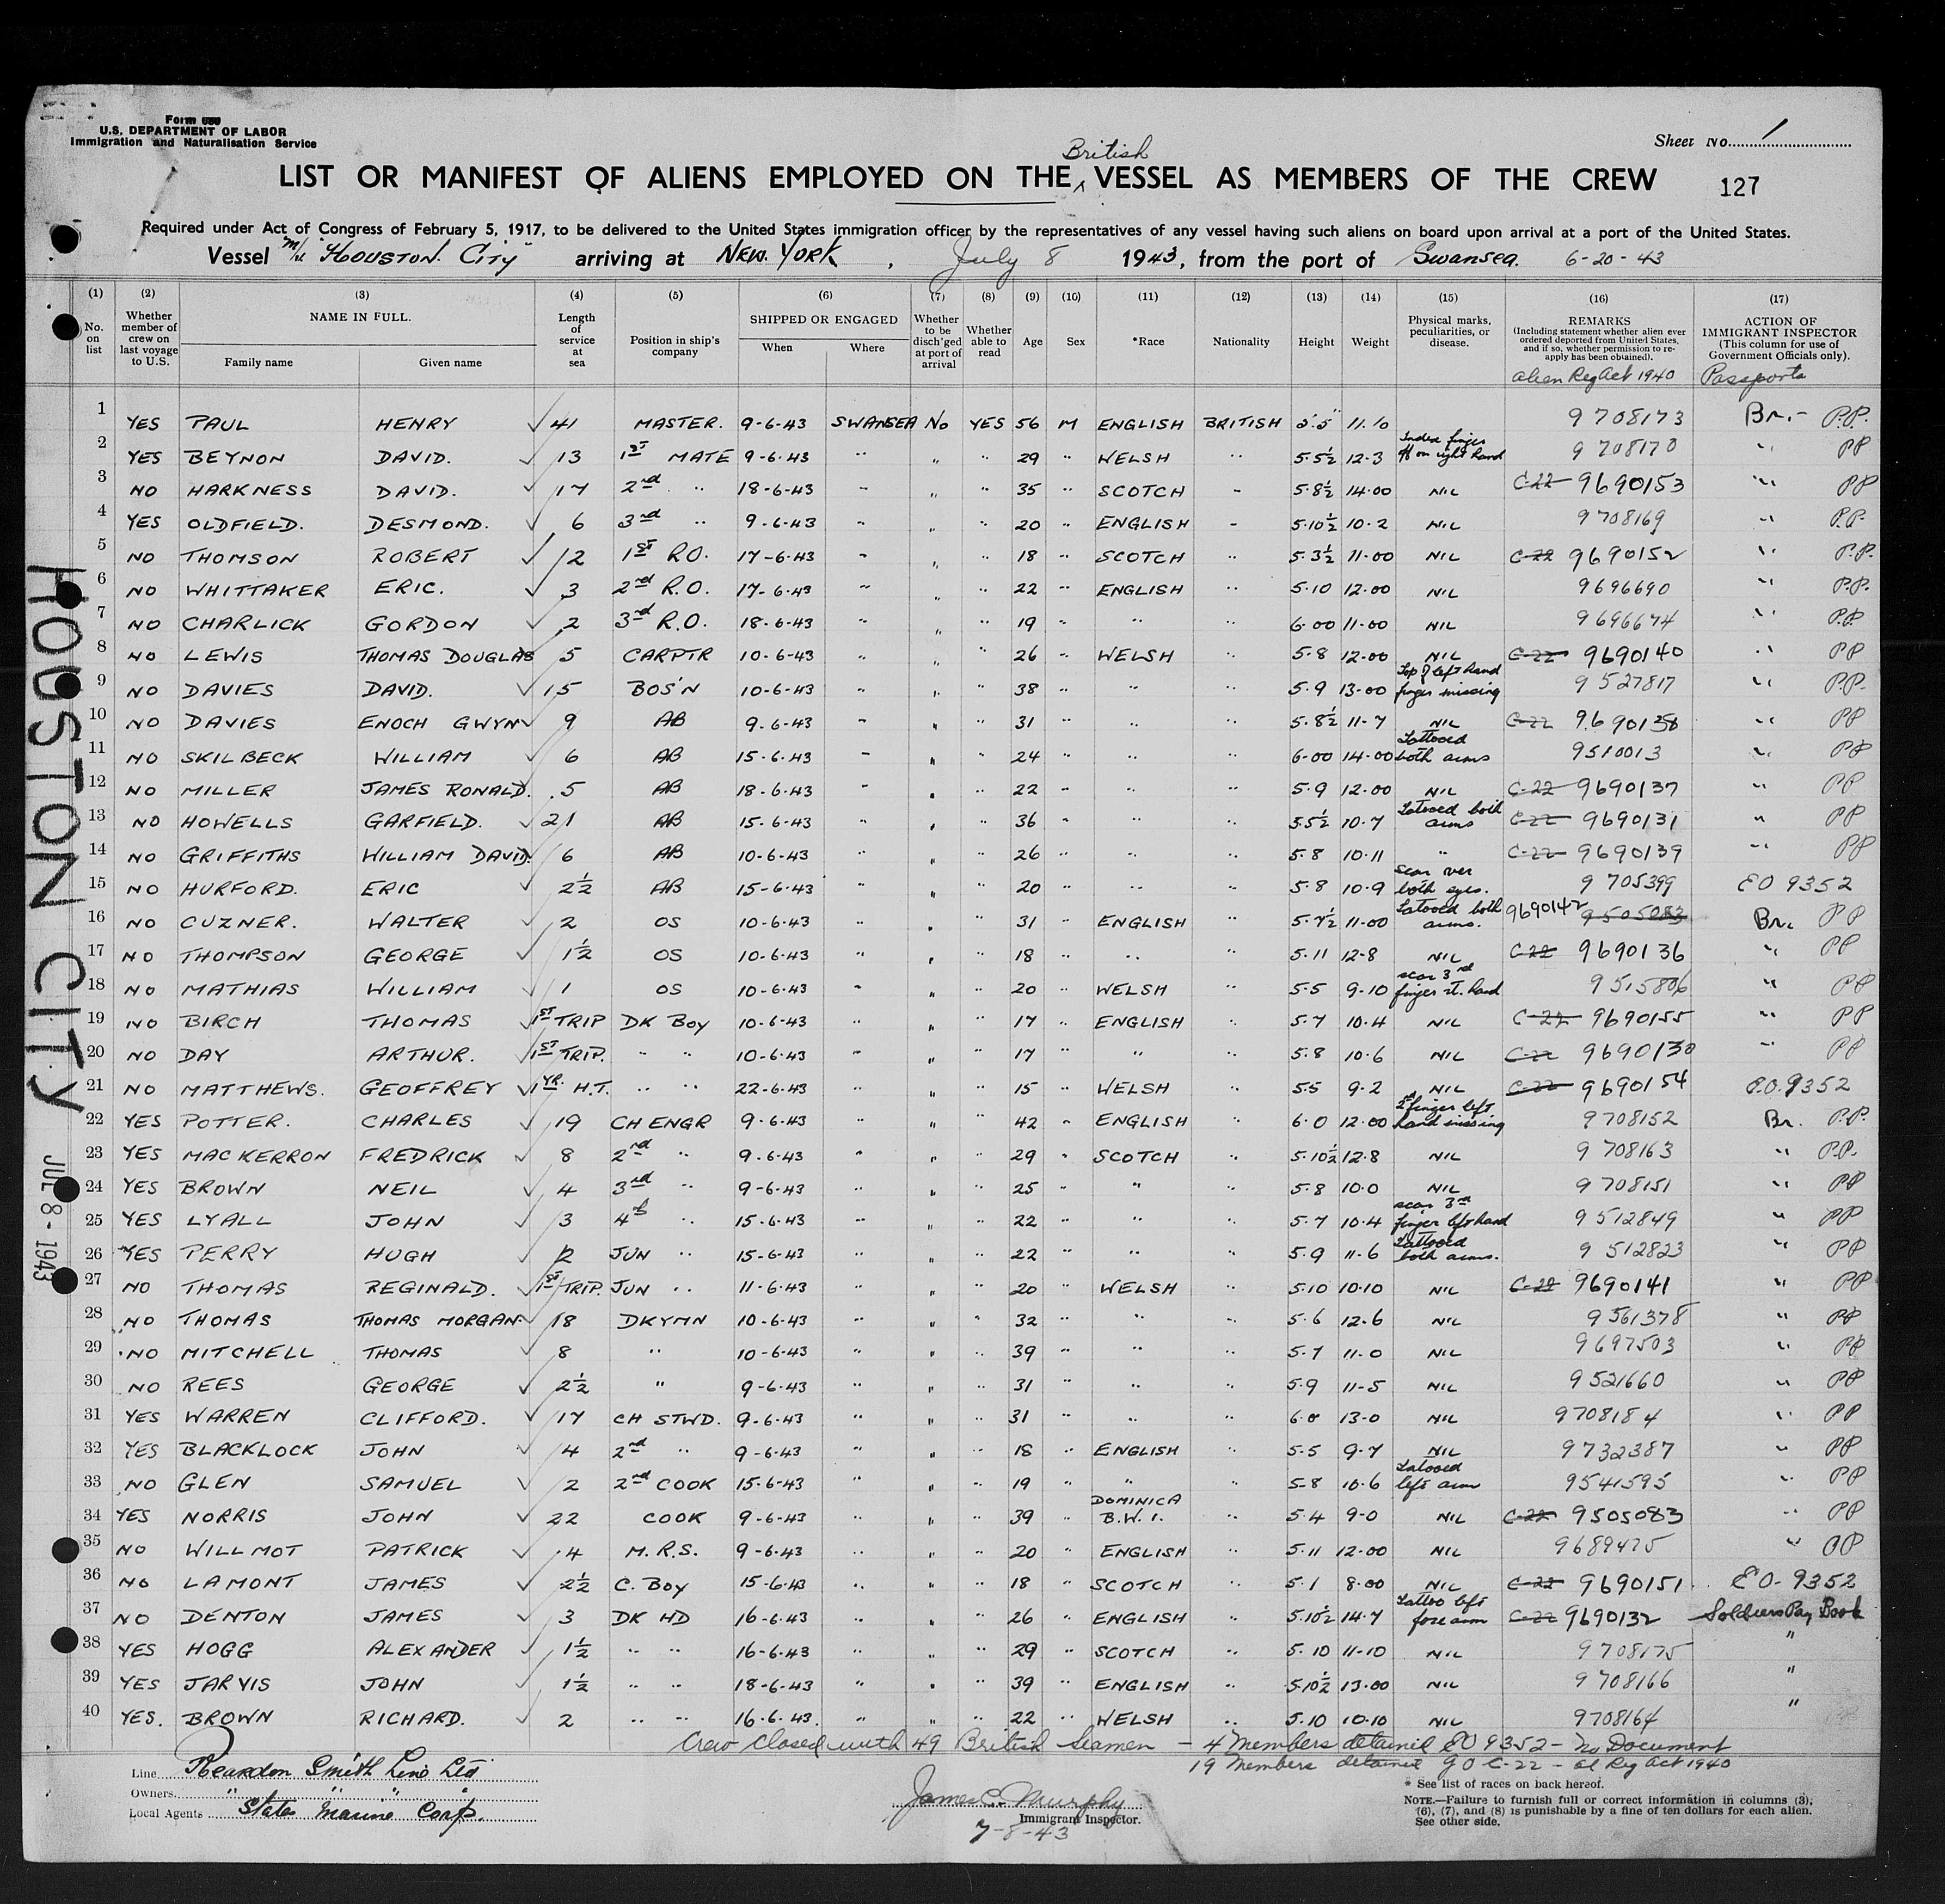 Form 680
U.S. DEPARTMENT OF LABOR
Immigration and Naturalisation Service
Sheet No. 1
British
LIST OR MANIFEST OF ALIENS EMPLOYED ON THE ^ VESSEL AS MEMBERS OF THE CREW 127
Required under Act of Congress of February 5, 1917, to be delivered to the United States immigration officer by the representatives of any vessel having such aliens on board upon arrival at a port of the United States.
Vessel "HOUSTON CITY" arriving at NEW YORK, July 8 1943, from the port of Swansea. 6-20-43
(1) (2) (3) (4) (5) (6) (7) (8) (9) (10) (11) (12) (13) (14) (15) (16) (17)
No. on list
Whether member of crew on last voyage to U.S.
NAME IN FULL.
Family name Given name
Length of service at sea
Position in ship's company
SHIPPED OR ENGAGED
When Where
Whether to be disch'ged at port of arrival
Whether able to read
Age
Sex
*Race
Nationality
Height
Weight
Physical marks, peculiarities, or disease.
REMARKS
(Including statement whether alien ever ordered deported from United States, and if so, whether permission to re-apply has been obtained).
Alien Reg Act 1940
ACTION OF IMMIGRANT INSPECTOR
(This column for use of Government Officials only).
Passports
1 YES PAUL HENRY ✓ 41 MASTER. 9-6-43 SWANSEA No YES 56 M ENGLISH BRITISH 5.5 11.10 9708173 Br.- P.P.
2 YES BEYNON DAVID. ✓ 13 1ST MATE 9-6-43 " " " 29 " WELSH " 5.5½ 12-3 Index finger off on right hand 9708170 " PP
3 NO HARKNESS DAVID. ✓ 17 2nd " 18-6-43 " " " 35 " SCOTCH " 5.8½ 14.00 NIL C-22 9690153 " PP
4 YES OLDFIELD. DESMOND. ✓ 6 3rd " 9-6-43 " " " 20 " ENGLISH " 5.10½ 10.2 NIL 9708169 " P.P.
5 NO THOMSON ROBERT ✓ 12 1ST R.O. 17-6-43 " " " 18 " SCOTCH " 5.3½ 11-00 NIL C-22 9690152 " P.P.
6 NO WHITTAKER ERIC. ✓ 3 2nd R.O. 17-6-43 " " " 22 " ENGLISH " 5.10 12.00 NIL 9696690 " P.P.
7 NO CHARLICK GORDON ✓ 2 3rd R.O. 18-6-43 " " " 19 " " " 6-00 11-00 NIL 9696674 " P.P.
8 NO LEWIS THOMAS DOUGLAS 5 CARPTR 10-6-43 " " " 26 " WELSH " 5.8 12.00 NIL C-22 9690140 " PP
9 NO DAVIES DAVID. ✓ 15 BOS'N 10-6-43 " " " 38 " " " 5.9 13-00 Top of left hand finger missing 9527817 " P.P.
10 NO DAVIES ENOCH GWYN ✓ 9 AB 9-6-43 " " " 31 " " " 5.8½ 11-7 NIL C-22 9690138 " PP
11 NO SKILBECK WILLIAM 6 AB 15-6-43 " " " 24 " " " 6-00 14-00 Tattooed both arms 9510013 " PP
12 NO MILLER JAMES RONALD. 5 AB 18-6-43 " " " 22 " " " 5.9 12.00 NIL C-22 9690137 " PP
13 NO HOWELLS GARFIELD. ✓ 21 AB 15-6-43 " " " 36 " " " 5.5½ 10.7 Tatooed both arms C-22 9690131 " PP
14 NO GRIFFITHS WILLIAM DAVID 6 AB 10-6-43 " " " 26 " " " 5.8 10.11 " C-22 9690139 " PP
15 NO HURFORD. ERIC ✓ 2½ AB 15-6-43 " " " 20 " " " 5.8 10.9 scar over both eyes. 9705399 EO 9352
16 NO CUZNER. WALTER ✓ 2 OS 10-6-43 " " " 31 " ENGLISH " 5.7½ 11-00 Tatooed both arms. 9690142 9505083 Br. PP
17 NO THOMPSON GEORGE ✓ 1½ OS 10-6-43 " " " 18 " " " 5.11 12-8 NIL C-22 9690136 " PP
18 NO MATHIAS WILLIAM 1 OS 10-6-43 " " " 20 " WELSH " 5.5 9-10 scar 3rd finger rt. hand 9515806 " PP
19 NO BIRCH THOMAS 1ST TRIP DK Boy 10-6-43 " " " 17 " ENGLISH " 5.7 10.4 NIL C-22 9690155 " PP
20 NO DAY ARTHUR. ✓ 1ST TRIP. " " 10-6-43 " " " 17 " " " 5.8 10.6 NIL C-22 9690130 " PP
21 NO MATTHEWS. GEOFFREY ✓ 1 YR. H.T. " " 22-6-43 " " " 15 " WELSH " 5.5 9.2 NIL C-22 9690154 E.O. 9352
22 YES POTTER. CHARLES ✓ 19 CH ENGR 9-6-43 " " " 42 " ENGLISH " 6.0 12.00 2nd finger left hand missing 9708152 Br. P.P.
23 YES MACKERRON FREDRICK ✓ 8 2nd " 9-6-43 " " " 29 " SCOTCH " 5.10½ 12.8 NIL 9708163 " P.P.
24 YES BROWN NEIL ✓ 4 3rd " 9-6-43 " " " 25 " " " 5.8 10.0 NIL 9708151 " PP
25 YES LYALL JOHN ✓ 3 4th " 15-6-43 " " " 22 " " " 5.7 10.4 scar 3rd finger left hand 9512849 " PP
26 YES PERRY HUGH ✓ 2 JUN " 15-6-43 " " " 22 " " " 5.9 11-6 Tattooed both arms. 9512823 " PP
27 NO THOMAS REGINALD. ✓ 1ST TRIP. JUN " 11-6-43 " " " 20 " WELSH " 5.10 10.10 NIL C-22 9690141 " PP
28 NO THOMAS THOMAS MORGAN ✓ 18 DKYMN 10-6-43 " " " 32 " " " 5.6 12.6 NIL 9561378 " PP
29 NO MITCHELL THOMAS ✓ 8 " 10-6-43 " " " 39 " " " 5.7 11-0 NIL 9697503 " PP
30 NO REES GEORGE ✓ 2½ " 9-6-43 " " " 31 " " " 5.9 11-5 NIL 9521660 " PP
31 YES WARREN CLIFFORD. ✓ 17 CH STWD. 9-6-43 " " " 31 " " " 6.0 13-0 NIL 9708184 " PP
32 YES BLACKLOCK JOHN ✓ 4 2nd " 9-6-43 " " " 18 " ENGLISH " 5.5 9.7 NIL 9732387 " PP
33 NO GLEN SAMUEL ✓ 2 2nd COOK 15-6-43 " " " 19 " " " 5-8 10.6 Tatooed left arm 9541595 " PP
34 YES NORRIS JOHN ✓ 22 COOK 9-6-43 " " " 39 " DOMINICA B.W.I. " 5.4 9-0 NIL C-22 9505083 " PP
35 NO WILLMOT PATRICK ✓ 4 M.R.S. 9-6-43 " " " 20 " ENGLISH " 5.11 12.00 NIL 9689475 " PP
36 NO LAMONT JAMES ✓ 2½ C. Boy 15-6-43 " " " 18 " SCOTCH " 5.1 8.00 NIL C-22 9690151 EO-9352
37 NO DENTON JAMES ✓ 3 DK HD 16-6-43 " " " 26 " ENGLISH " 5.10½ 14.7 Tattoo left fore arm C-22 9690132 Soldiers Pay Book
38 YES HOGG ALEXANDER ✓ 1½ " " 16-6-43 " " " 29 " SCOTCH " 5.10 11-10 NIL 9708175 "
39 YES JARVIS JOHN ✓ 1½ " " 18-6-43 " " " 39 " ENGLISH " 5.10½ 13.00 NIL 9708166 "
40 YES. BROWN RICHARD. ✓ 2 " " 16-6-43. " " " 22 " WELSH " 5.10 10.10 NIL 9708164 "
Crew closed with 49 British Seamen - 4 Members detained EO 9352 - No Document
19 Members detained GO C-22 - al Reg Act 1940
Line Reardon Smith Line Ltd
Owners " " "
Local Agents States Marine Corp.
James C. Murphy
Immigrant Inspector.
7-8-43
* See list of races on back hereof.
NOTE.—Failure to furnish full or correct information in columns (3), (6), (7), and (8) is punishable by a fine of ten dollars for each alien. See other side.
HOUSTON CITY
JUL 8 - 1943